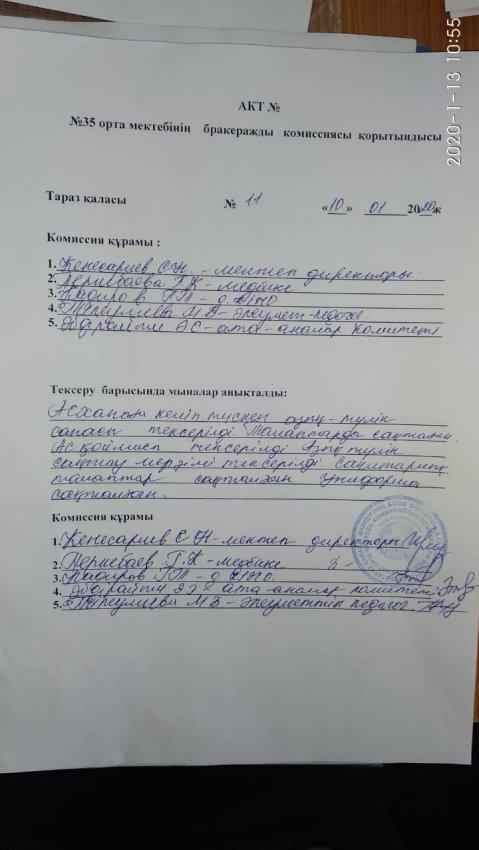 2020-1-13 10:55
АКТ №
№35 орта мектебінің бракеражды комиссиясы қорытындысы
Тараз қаласы № 11 «10» 01 2020ж
Комиссия құрамы :
1. Кенесариев С.Н. - мектеп директоры.
2. Пернебаева Г.Ж - медбике
3. Кадиров Г.Т - д.
4. М Б - әлеумет-педагог.
5. ӘС - ата-аналар комитеті
Тексеру барысында мыналар анықталды:
Асханаға келіп түскен азық-түлік
сапасы тексерілді. Талаптарды сақтаған.
Ас қоймасы тексерілді Азық түлік
сақтау мерзімі тексерілді. Санитарлық
талаптар сақталған Униформа
сақталған.
Комиссия құрамы
1. Кенесариев С Н - мектеп директоры
2. Пернебаев Г.Ж - медбике
3. Кадиров Г.Т - д.
4. ата-аналар комитеті
5. М Б - әлеуметтік педагог